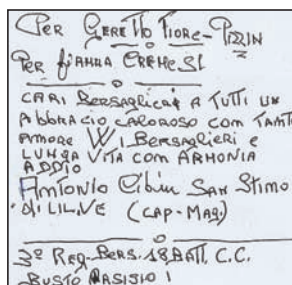 PER GERETTO FIORE-PIZZIN
PER FIAMMA CREMESI
CARI BERSAGLIERI A TUTTI UN
ABBRACIO CALOROSO COM TANTO
AMORE W I BERSAGLIERI e
LUNGA VITA COM ARMONIA
ADDIO
ANTONIO Cibin SAN STINO
di LIVE (CAP-MAG.)
3º REG-BERS. 18 BATT. C.C.
BUSTO ARSISIO